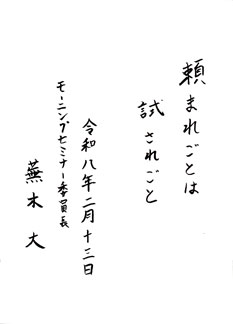 頼まれごとは
試されごと
令和八年二月十三日
モーニングセミナー委員長
蕪木 大